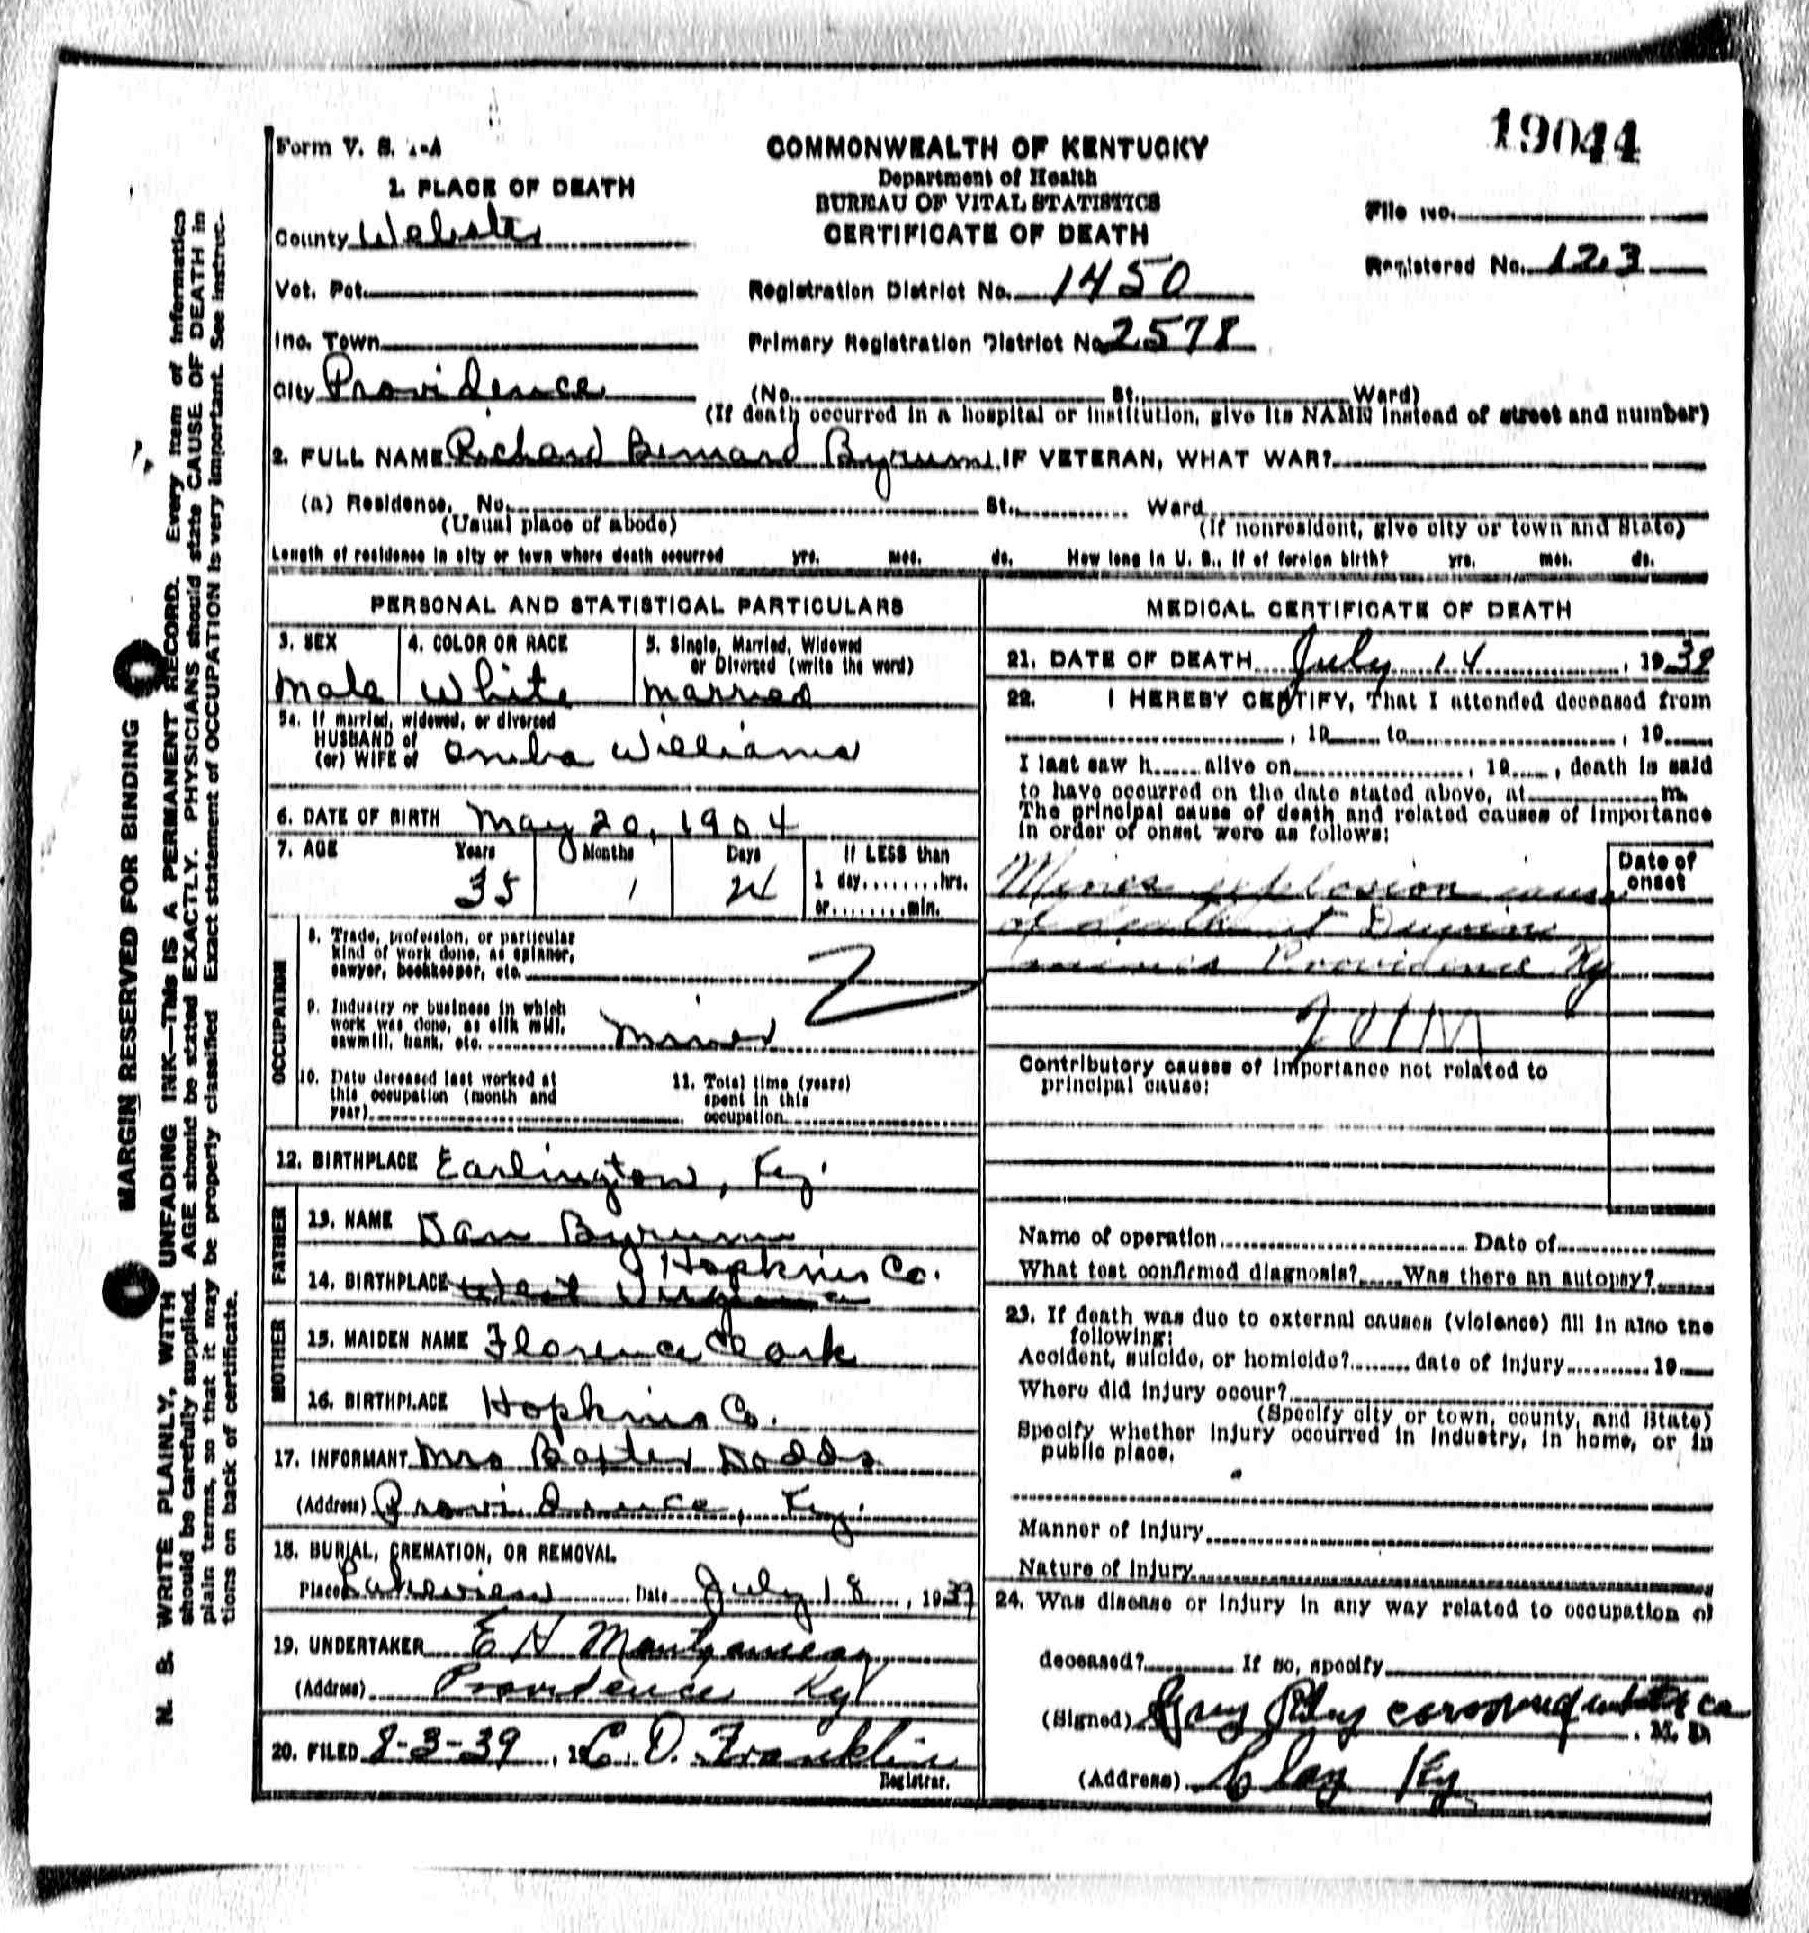 19044
Form V. S. 1-A
COMMONWEALTH OF KENTUCKY
Department of Health
BUREAU OF VITAL STATISTICS
CERTIFICATE OF DEATH
File No.
Registered No. 123
1. PLACE OF DEATH
County Webster
Vot. Pct.
Registration District No. 1450
Inc. Town
Primary Registration District No. 2578
City Providence (No. St. Ward)
(If death occurred in a hospital or institution, give its NAME instead of street and number)
2. FULL NAME Richard Bernard Byrum IF VETERAN, WHAT WAR?
(a) Residence. No. St. Ward
(Usual place of abode) (If nonresident, give city or town and State)
Length of residence in city or town where death occurred yrs. mos. ds. How long in U. S., if of foreign birth? yrs. mos. ds.
PERSONAL AND STATISTICAL PARTICULARS
3. SEX 4. COLOR OR RACE 5. Single, Married, Widowed
or Divorced (write the word)
Male White Married
5a. If married, widowed, or divorced
HUSBAND of
(or) WIFE of Williams
6. DATE OF BIRTH May 20, 1904
7. AGE Years Months Days If LESS than
35 1 24 1 day ........hrs.
or ........min.
OCCUPATION
8. Trade, profession, or particular
kind of work done, as spinner,
sawyer, bookkeeper, etc.
9. Industry or business in which
work was done, as silk mill,
sawmill, bank, etc. Miner
10. Date deceased last worked at
this occupation (month and
year)
11. Total time (years)
spent in this
occupation
12. BIRTHPLACE Earlington, Ky.
FATHER
13. NAME Dan Byrum
Hopkins Co.
14. BIRTHPLACE West Virginia
MOTHER
15. MAIDEN NAME Florence Clark
16. BIRTHPLACE Hopkins Co.
17. INFORMANT Mrs Baxter Dodds
(Address) Providence, Ky.
18. BURIAL, CREMATION, OR REMOVAL
Place Lakeview Date July 18, 1939
19. UNDERTAKER E H Montgomery
(Address) Providence Ky
20. FILED 8-3-39, 19 C. D. Franklin
Registrar.
MEDICAL CERTIFICATE OF DEATH
21. DATE OF DEATH July 14, 1939
22. I HEREBY CERTIFY, That I attended deceased from
, 19 to , 19
I last saw h alive on , 19 , death is said
to have occurred on the date stated above, at m.
The principal cause of death and related causes of importance
in order of onset were as follows:
Date of
onset
Mines explosion cause
of death at
mines Providence Ky
Contributory causes of importance not related to
principal cause:
Name of operation Date of
What test confirmed diagnosis? Was there an autopsy?
23. If death was due to external causes (violence) fill in also the
following:
Accident, suicide, or homicide? date of injury 19
Where did injury occur?
(Specify city or town, county, and State)
Specify whether injury occurred in industry, in home, or in
public place.
Manner of injury
Nature of injury
24. Was disease or injury in any way related to occupation of
deceased? If so, specify
(Signed) coroner , M. D.
(Address) Clay Ky
MARGIN RESERVED FOR BINDING
N. B. WRITE PLAINLY, WITH UNFADING INK—THIS IS A PERMANENT RECORD. Every item of information
should be carefully supplied. AGE should be stated EXACTLY. PHYSICIANS should state CAUSE OF DEATH in
plain terms, so that it may be properly classified. Exact statement of OCCUPATION is very important. See instruc-
tions on back of certificate.